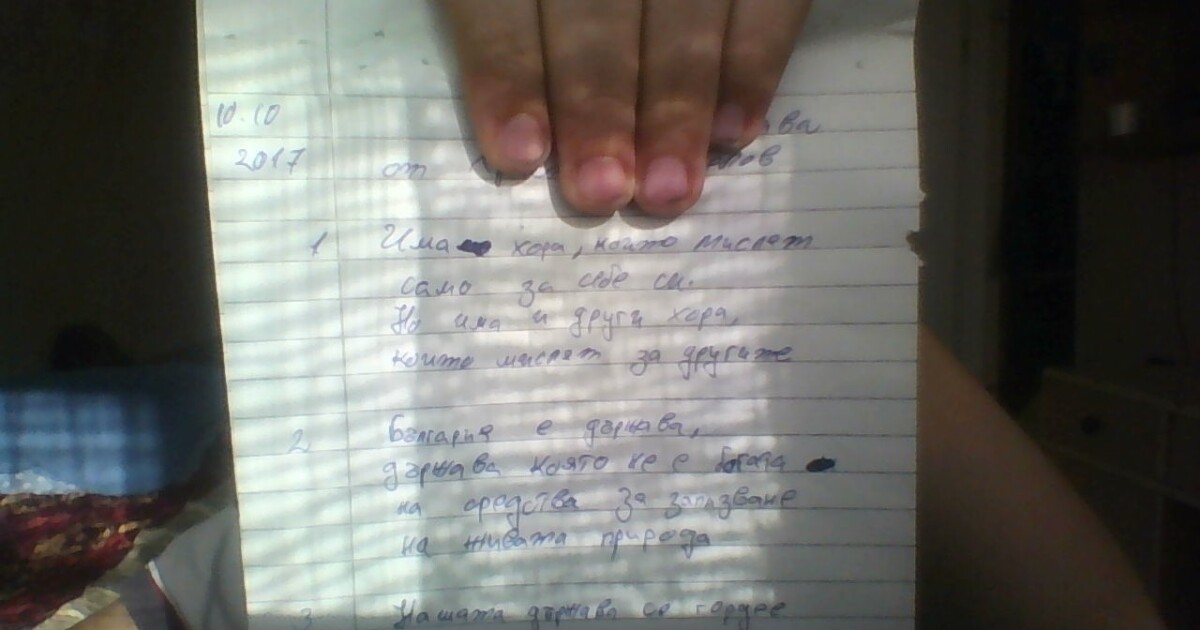 10.10
2017 от
1 Има хора, които мислят
само за себе си.
Но има и други хора,
които мислят за другите
2 България е държава,
държава която не е богата
на средства за запазване
на живата природа
3 Нашата държава се гордее